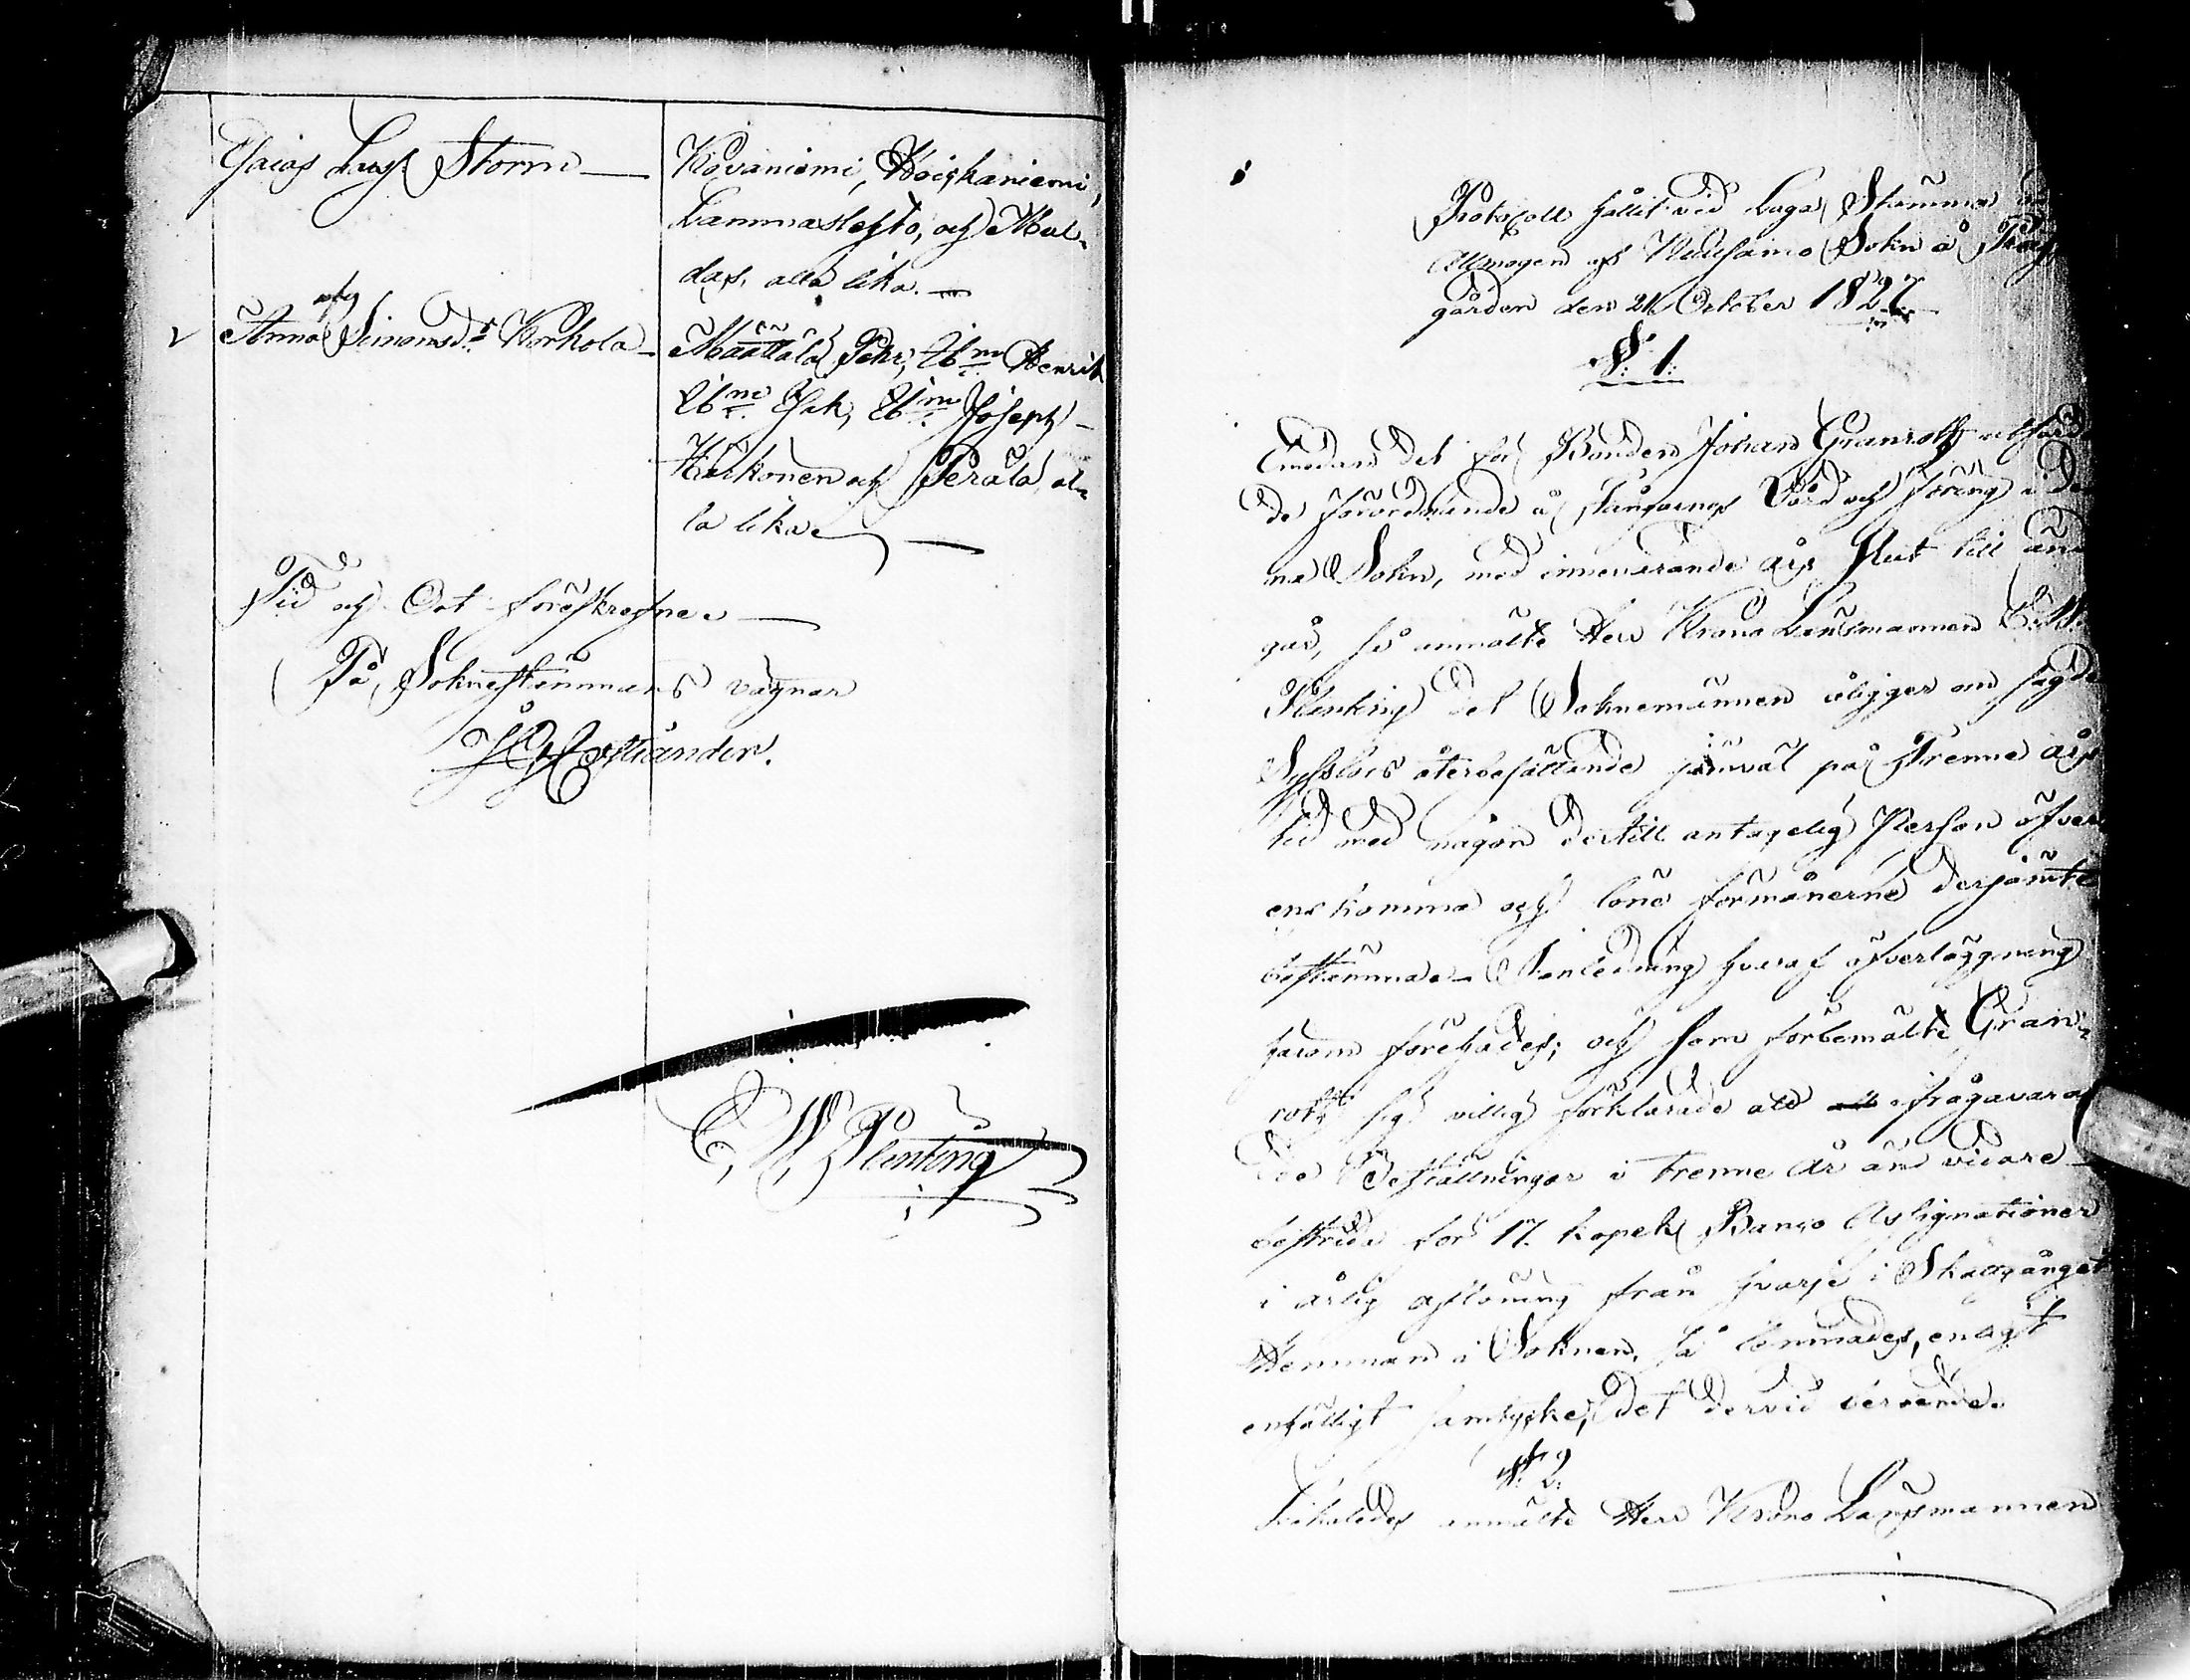 Esaias Lars Storm —
Kovaniemi, Heiskaniemi,
Lammaslehto, och Mul-
das, alla lika. —
afs
v Anna Simonsdr Korkola —
Määttälä Pehr, 26m Henrik
26m Isak, 26m Joseph —
Härkönen och Perälä, al-
la lika —
Tid och Ort förefskrefne. —
På, Soknestämmans vägnar
Costiander.
E, W, Plenting
Protocoll hållit vid laga Stämma
Allmogen af Kuusamo Sokn å Präst
gården den 21 October 1827.
§. 1.
Emedan det för Bonden Johan Granroth
de förordnande å fångarnes Vård och föring i De
na Sokn, med innevarande års slut till änd
går, så anmälte Herr Krono Länsmannen E. W.
Plenting det Soknemännen åligger om sagde
Sysslors återbesättande jemväl på Trenne års
tid med någon dertill antagelig Person öfver
ens komma och löne förmånerne derjämte
bestämma. — I anledning hvaraf öfverläggning
härom förehades; och som förbemälte Gran-
roth sig villig förklarade att ifrågavaran
de Beställningar i trenne år än vidare
bestrida för 17. kopek Banco Assignationer
i årlig aflöning från hvarje i Skallgånget
Hemman i Soknen, så lemnades, enligt
enhälligt samtycke, det dervid beroende.
§. 2.
Likaledes anmälte Herr Krono Länsmannen